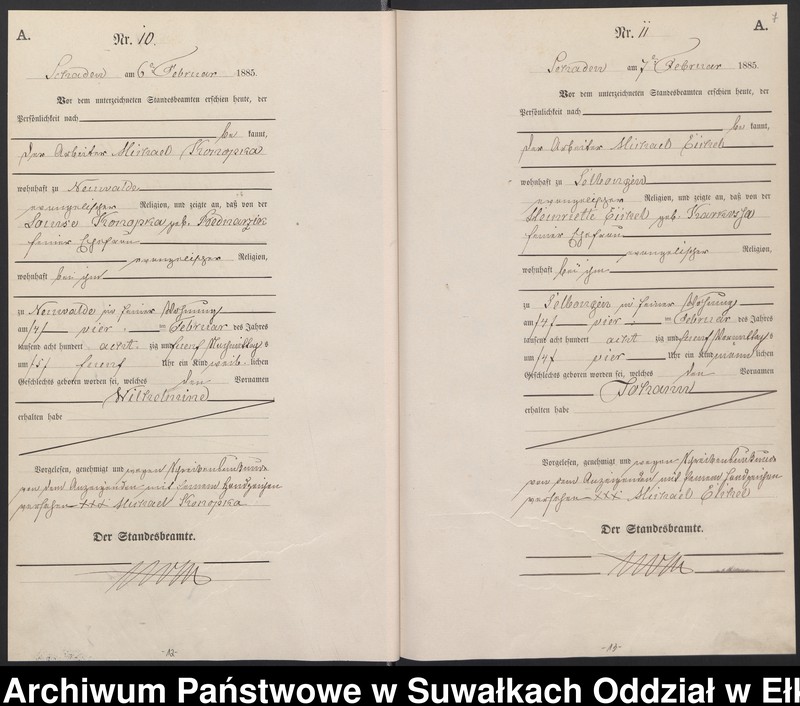 A.
Nr. 10.
am 6ten Februar 1885.
Vor dem unterzeichneten Standesbeamten erschien heute, der
Persönlichkeit nach
be kannt,
der Arbeiter Michael Konopka
wohnhaft zu Neuwalde
evangelischer Religion, und zeigte an, daß von der
Louise Konopka geb. Bednarzik
seiner Ehefrau
evangelischer Religion,
wohnhaft bei ihm
zu Neuwalde in seiner Wohnung
am /4/ vier ten Februar des Jahres
tausend acht hundert acht zig und fünf Nachmittags
um /5/ fuenf Uhr ein Kind weib lichen
Geschlechts geboren worden sei, welches den Vornamen
Wilhelmine
erhalten habe
Vorgelesen, genehmigt und wegen Schreibensunkunde
von dem Anzeigenden mit seinem Handzeichen
versehen xxx Michael Konopka
Der Standesbeamte.
-13-
A. 7
Nr. 11
am 7ten Februar 1885.
Vor dem unterzeichneten Standesbeamten erschien heute, der
Persönlichkeit nach
be kannt,
der Arbeiter Michael
wohnhaft zu
evangelischer Religion, und zeigte an, daß von der
Henriette geb.
seiner Ehefrau
evangelischer Religion,
wohnhaft bei ihm
zu in seiner Wohnung
am /4/ vier ten Februar des Jahres
tausend acht hundert acht zig und fuenf Vormittags
um /4/ vier Uhr ein Kind männ lichen
Geschlechts geboren worden sei, welches den Vornamen
Johann
erhalten habe
Vorgelesen, genehmigt und wegen Schreibensunkunde
von dem Anzeigenden mit seinem Handzeichen
versehen xxx Michael
Der Standesbeamte.
Archiwum Państwowe w Suwałkach Oddział w Ełk